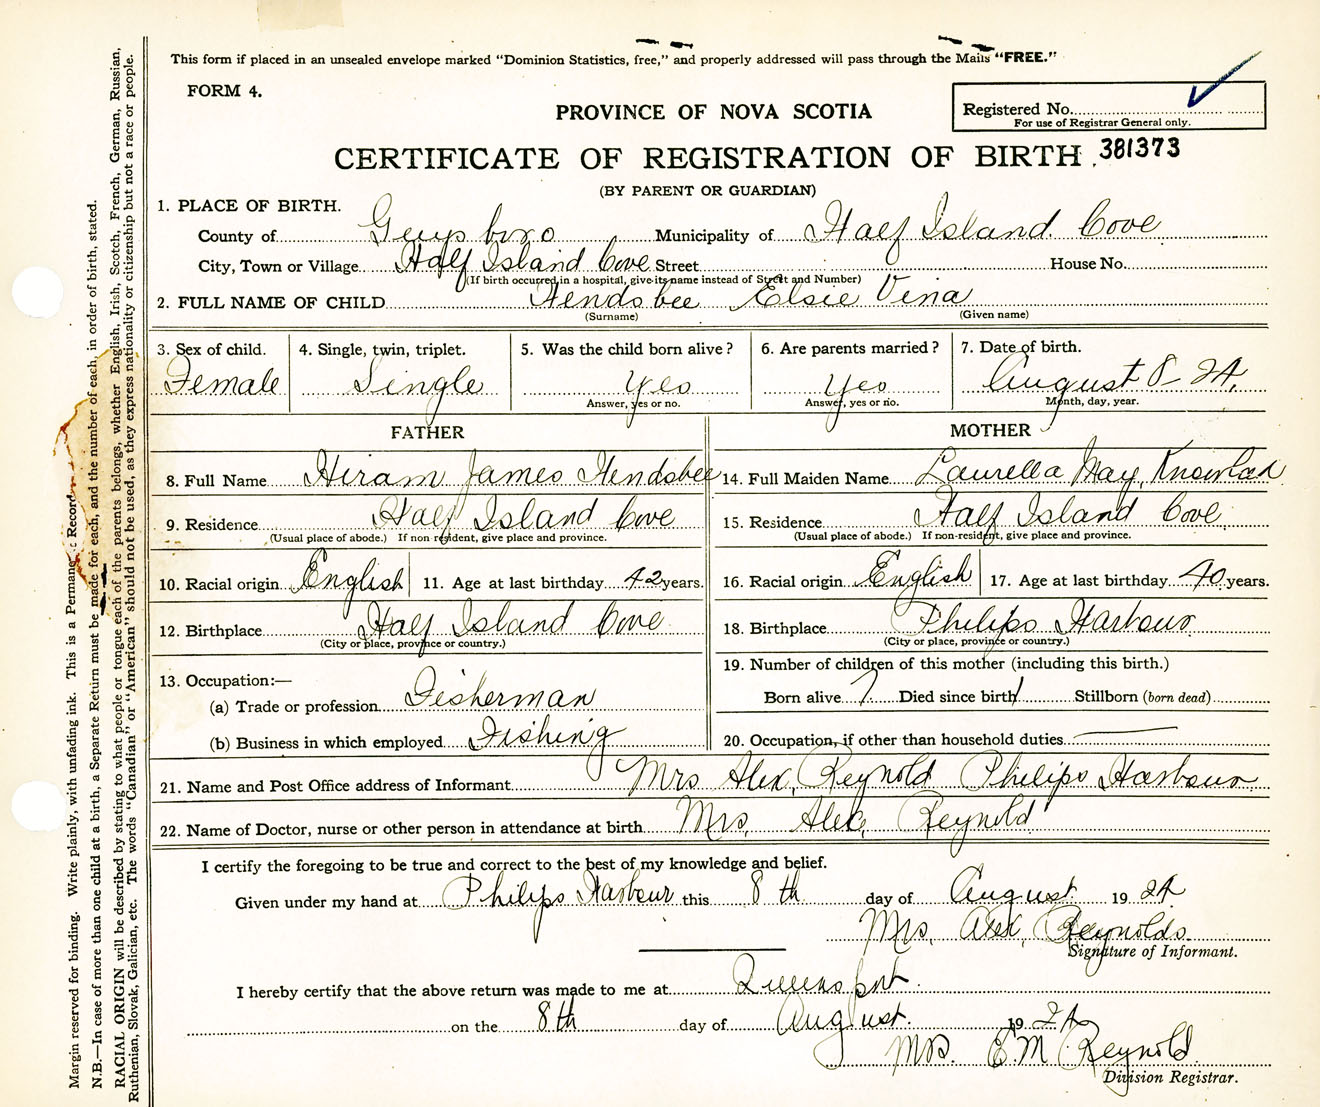 This form if placed in an unsealed envelope marked “Dominion Statistics, free,” and properly addressed will pass through the Mails “FREE.”
FORM 4.
PROVINCE OF NOVA SCOTIA
Registered No.
For use of Registrar General only.
CERTIFICATE OF REGISTRATION OF BIRTH 381373
(BY PARENT OR GUARDIAN)
1. PLACE OF BIRTH.
County of Guysboro Municipality of Half Island Cove
City, Town or Village Half Island Cove Street House No.
(If birth occurred in a hospital, give its name instead of Street and Number)
2. FULL NAME OF CHILD Hendsbee Elsie Vina
(Surname) (Given name)
3. Sex of child. 4. Single, twin, triplet. 5. Was the child born alive? 6. Are parents married? 7. Date of birth.
Female Single Yes Yes August 8-24.
Answer, yes or no. Answer, yes or no. Month, day, year.
FATHER MOTHER
8. Full Name Hiram James Hendsbee 14. Full Maiden Name Laurella May
9. Residence Half Island Cove 15. Residence Half Island Cove
(Usual place of abode.) If non-resident, give place and province. (Usual place of abode.) If non-resident, give place and province.
10. Racial origin English 11. Age at last birthday 42 years. 16. Racial origin English 17. Age at last birthday 40 years.
12. Birthplace Half Island Cove 18. Birthplace Philips Harbour
(City or place, province or country.) (City or place, province or country.)
13. Occupation:— 19. Number of children of this mother (including this birth.)
(a) Trade or profession Fisherman Born alive 7 Died since birth 1 Stillborn (born dead)
(b) Business in which employed Fishing 20. Occupation, if other than household duties
21. Name and Post Office address of Informant Mrs Alex, Reynold Philips Harbour
22. Name of Doctor, nurse or other person in attendance at birth Mrs, Alex, Reynold
I certify the foregoing to be true and correct to the best of my knowledge and belief.
Given under my hand at Philips Harbour this 8 th day of August 1924
Mrs, Alex, Reynolds.
Signature of Informant.
I hereby certify that the above return was made to me at Queensport.
on the 8th day of August. 1924
Mrs. E M Reynold
Division Registrar.
Margin reserved for binding. Write plainly, with unfading ink. This is a Permanent Record
N.B.—In case of more than one child at a birth, a Separate Return must be made for each, and the number of each, in order of birth, stated.
RACIAL ORIGIN will be described by stating to what people or tongue each of the parents belongs, whether English, Irish, Scotch, French, German, Russian,
Ruthenian, Slovak, Galician, etc. The words “Canadian” or “American” should not be used, as they express nationality or citizenship but not a race or people.